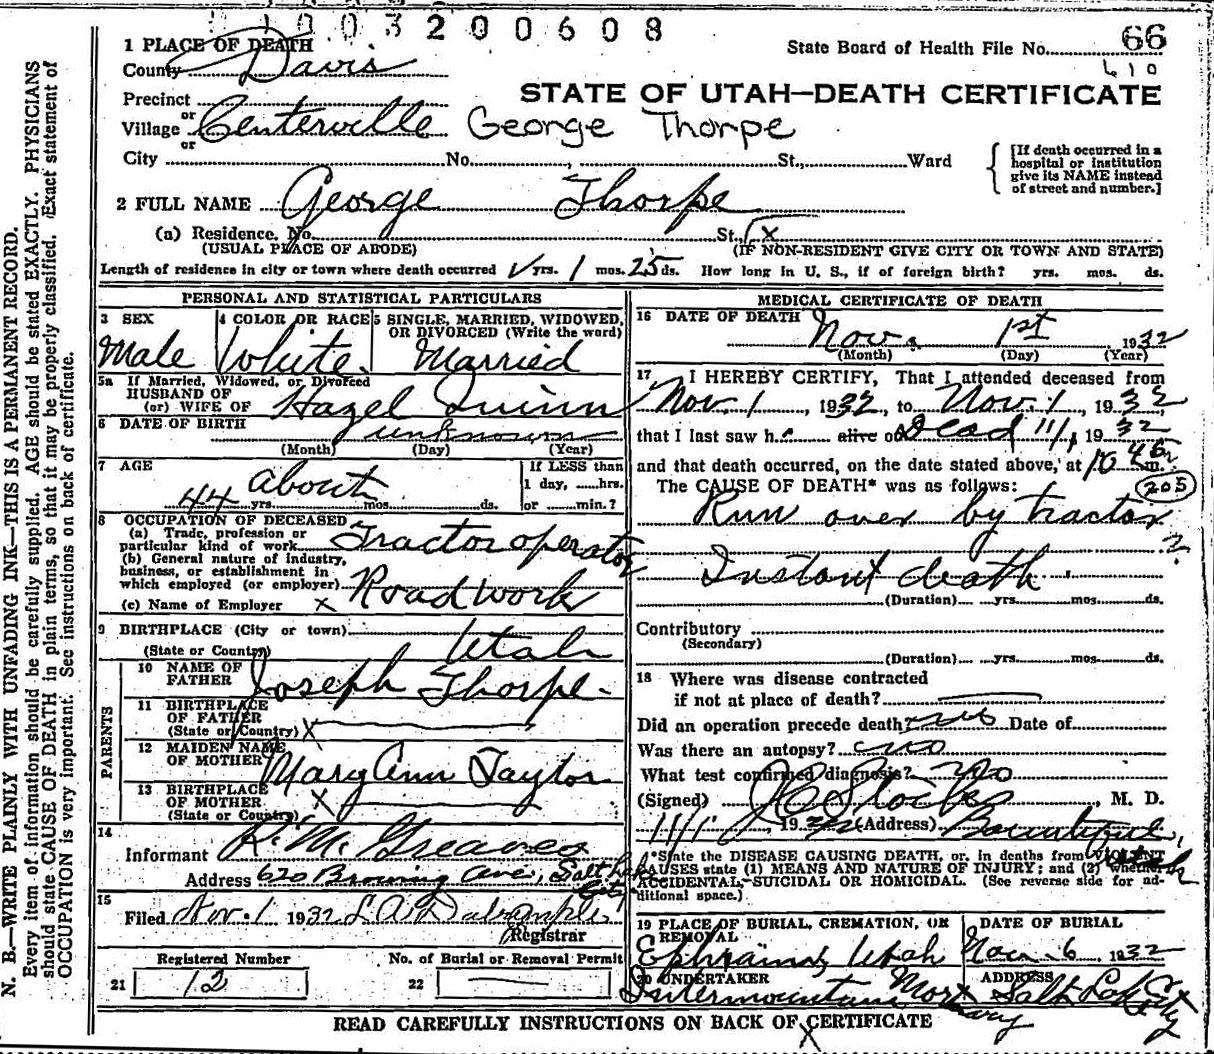 1003200608
66
State Board of Health File No.
610
1 PLACE OF DEATH
County Davis
STATE OF UTAH—DEATH CERTIFICATE
Precinct
or
Village Centerville George Thorpe
or
City No. , St., Ward
[If death occurred in a hospital or institution give its NAME instead of street and number.]
2 FULL NAME George Thorpe
(a) Residence. No. St., x
(USUAL PLACE OF ABODE) (IF NON-RESIDENT GIVE CITY OR TOWN AND STATE)
Length of residence in city or town where death occurred yrs. 1 mos. 25 ds. How long in U. S., if of foreign birth? yrs. mos. ds.
PERSONAL AND STATISTICAL PARTICULARS
3 SEX 4 COLOR OR RACE 5 SINGLE, MARRIED, WIDOWED, OR DIVORCED (Write the word)
Male White. Married
5a If Married, Widowed, or Divorced
HUSBAND OF
(or) WIFE OF Hazel Quinn
6 DATE OF BIRTH unknown
(Month) (Day) (Year)
7 AGE about
44 yrs. mos. ds.
If LESS than
1 day, hrs.
or min.?
8 OCCUPATION OF DECEASED
(a) Trade, profession or
particular kind of work Tractor operator
(b) General nature of industry,
business, or establishment in
which employed (or employer) Road work
(c) Name of Employer x
9 BIRTHPLACE (City or town)
(State or Country) Utah
PARENTS
10 NAME OF FATHER Joseph Thorpe
11 BIRTHPLACE OF FATHER
(State or Country) X
12 MAIDEN NAME OF MOTHER Mary Ann Taylor
13 BIRTHPLACE OF MOTHER
(State or Country) X
14
Informant R. M. Greaves
Address 620 Browning Ave, Salt Lake City
15
Filed Nov. 1 1932
Registrar
Registered Number No. of Burial or Removal Permit
21 12 22
MEDICAL CERTIFICATE OF DEATH
16 DATE OF DEATH Nov. 1st 1932
(Month) (Day) (Year)
17 I HEREBY CERTIFY, That I attended deceased from
Nov. 1, 1932, to Nov. 1, 1932
that I last saw h alive on Dead 11/1, 1932
and that death occurred, on the date stated above, at 10 45 m.
The CAUSE OF DEATH* was as follows: 205
Run over by tractor
Instant death
(Duration) yrs. mos. ds.
Contributory
(Secondary)
(Duration) yrs. mos. ds.
18 Where was disease contracted
if not at place of death?
Did an operation precede death? no Date of
Was there an autopsy? no
What test confirmed diagnosis? no
(Signed) , M. D.
11/1, 1932 (Address) Bountiful, Utah
*State the DISEASE CAUSING DEATH, or, in deaths from VIOLENT
CAUSES state (1) MEANS AND NATURE OF INJURY; and (2) whether
ACCIDENTAL, SUICIDAL OR HOMICIDAL. (See reverse side for ad-
ditional space.)
19 PLACE OF BURIAL, CREMATION, OR REMOVAL DATE OF BURIAL
Ephraim, Utah Nov. 6 1932
20 UNDERTAKER ADDRESS
Intermountain Mortuary Salt Lake City
READ CAREFULLY INSTRUCTIONS ON BACK OF CERTIFICATE
X
N. B.—WRITE PLAINLY WITH UNFADING INK—THIS IS A PERMANENT RECORD.
Every item of information should be carefully supplied. AGE should be stated EXACTLY. PHYSICIANS
should state CAUSE OF DEATH in plain terms, so that it may be properly classified. Exact statement of
OCCUPATION is very important. See instructions on back of certificate.